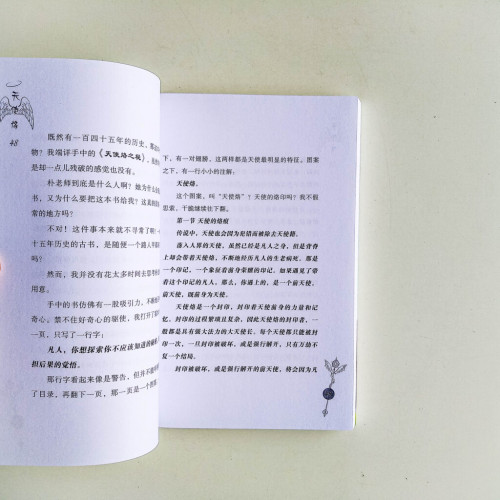 天使烙
48
既然有一百四十五年的历史，那
物？我端详手中的《天使烙之
是却一点儿残破的感觉也没有。
朴老师到底是什么人啊？她为什么
又为什么要把这本书给我？这真的
常的地方吗？
不对！这件事本来就不寻常！一
十五年历史的古书，是随便一个路人
然而，我并没有花太多时间去思考
用意。
手中的书仿佛有一股吸引力，不断
奇心。禁不住好奇心的驱使，我打开了
一页，只写了一行字：
凡人，你想探索你不应该知道的
担后果的觉悟。
那行字看起来像是警告，但并不能
了目录，再翻下一页，那一页是一个图
下，有一对翅膀，这两样都是天使最明显的特征。图案
之下，有一行小小的注解：
天使烙。
这个图案，叫“天使烙”？天使的烙印吗？我不假
思索，干脆继续往下翻。
第一节 天使的烙痕
传说中，天使也会因为犯错而被除去天使籍。
落入人界的天使，虽然已经是凡人之身，但是背脊
上却会带着天使烙，不断地经历凡人的生老病死。那是
一个印记，一个象征着前身荣耀的印记。如果遇见了带
着这个印记的凡人，那么，你遇上的，是一个前天使。
前天使，既前身为天使。
天使烙是一个封印，封印着天使前身的力量和记
忆。封印的过程繁琐且复杂，因此天使烙的封印者，一
般都是具有强大法力的大天使长。每个天使都只能被封
印一次，一旦封印被破坏，或是强行解开，只在万劫不
复一个结局。
封印被破坏，或是强行解开的前天使，将会因为凡